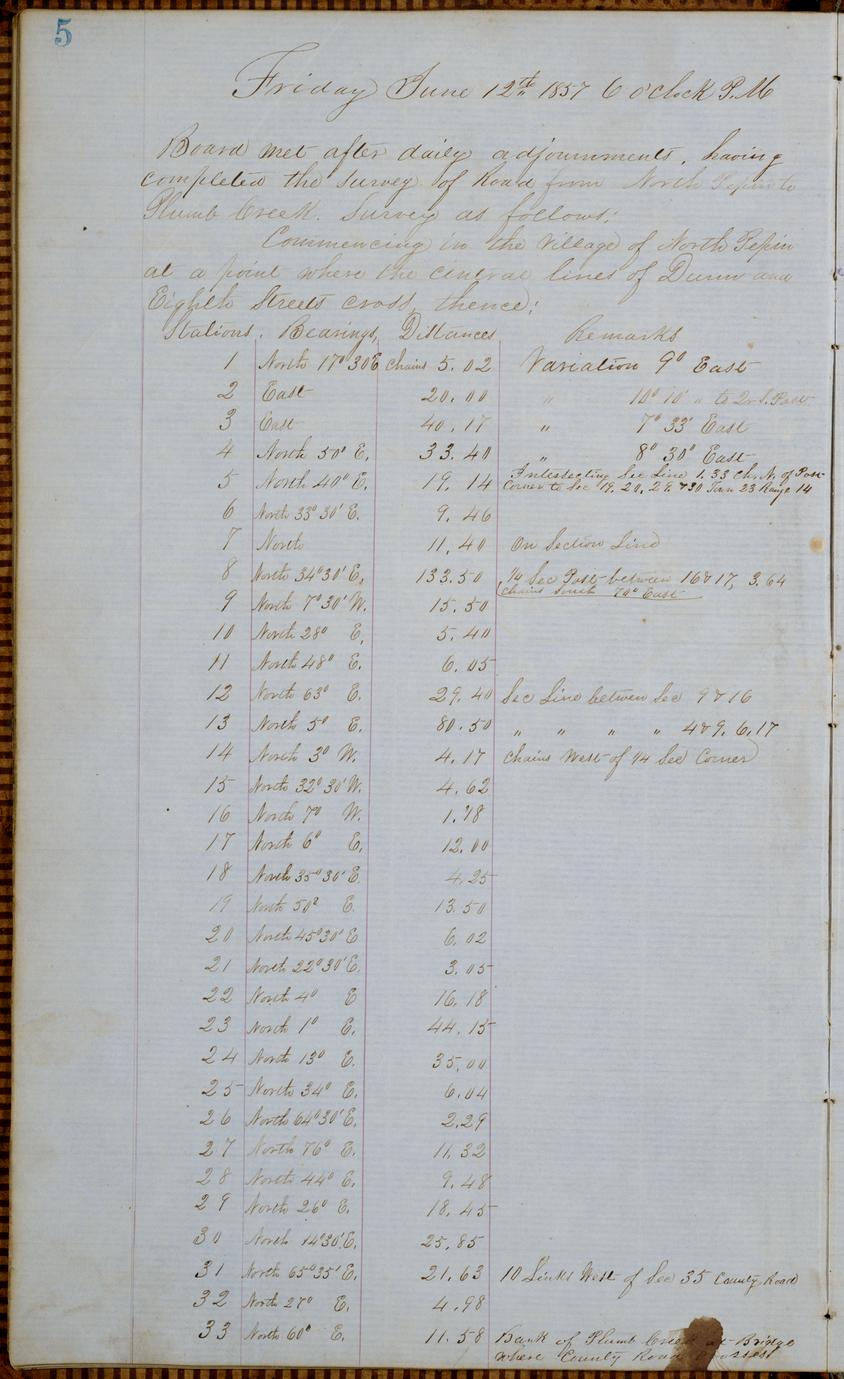 5
Friday June 12th 1857 6 o'clock P.M
Board met after daily adjournments, having
completed the survey of Road from North Pepin to
Plumb Creek. Survey as follows:
Commencing in the Village of North Pepin
at a point where the central lines of Dunn and
Eighth Streets cross, thence;
Stations. Bearings, Distances Remarks
1 North 17° 30' E chains 5.02 Variation 9° East
2 East 20.00 " 10° 10' " to Qr. S. Post
3 East 40.17 " 7° 33' East
4 North 50° E. 33.40 " 8° 30' East
5 North 40° E. 19.14 Intersecting Sec Line 1.33 Ch. N. of Post
Corner to Sec 19, 20, 29, & 30 Town 23 Range 14
6 North 33° 30' E. 9.46
7 North 11.40 On Section Line
8 North 34° 30' E. 133.50 1/4 Sec Post between 16 & 17, 3.64
chains South 70° East
9 North 7° 30' W. 15.50
10 North 28° E. 5.40
11 North 48° E. 6.05
12 North 63° E. 29.40 Sec Line betwen Sec 9 & 16
13 North 5° E. 80.50 " " " " 4 & 9. 6.17
14 North 3° W. 4.17 Chains West of 1/4 Sec Corner
15 North 32° 30' W. 4.62
16 North 7° W. 1.78
17 North 6° E. 12.00
18 North 35° 30' E. 4.25
19 North 50° E. 13.50
20 North 45° 30' E 6.02
21 North 22° 30' E. 3.05
22 North 4° E 16.18
23 North 1° E. 44.15
24 North 13° E. 35.00
25 North 34° E. 6.04
26 North 64° 30' E. 2.29
27 North 76° E. 11.32
28 North 44° E. 9.48
29 North 26° E. 18.45
30 North 14° 30' E. 25.85
31 North 65° 35' E. 21.63 10 Links West of Sec 35 County Road
32 North 27° E. 4.98
33 North 60° E. 11.58 Bank of Plumb Creek at Bridge
where County Road Crosses